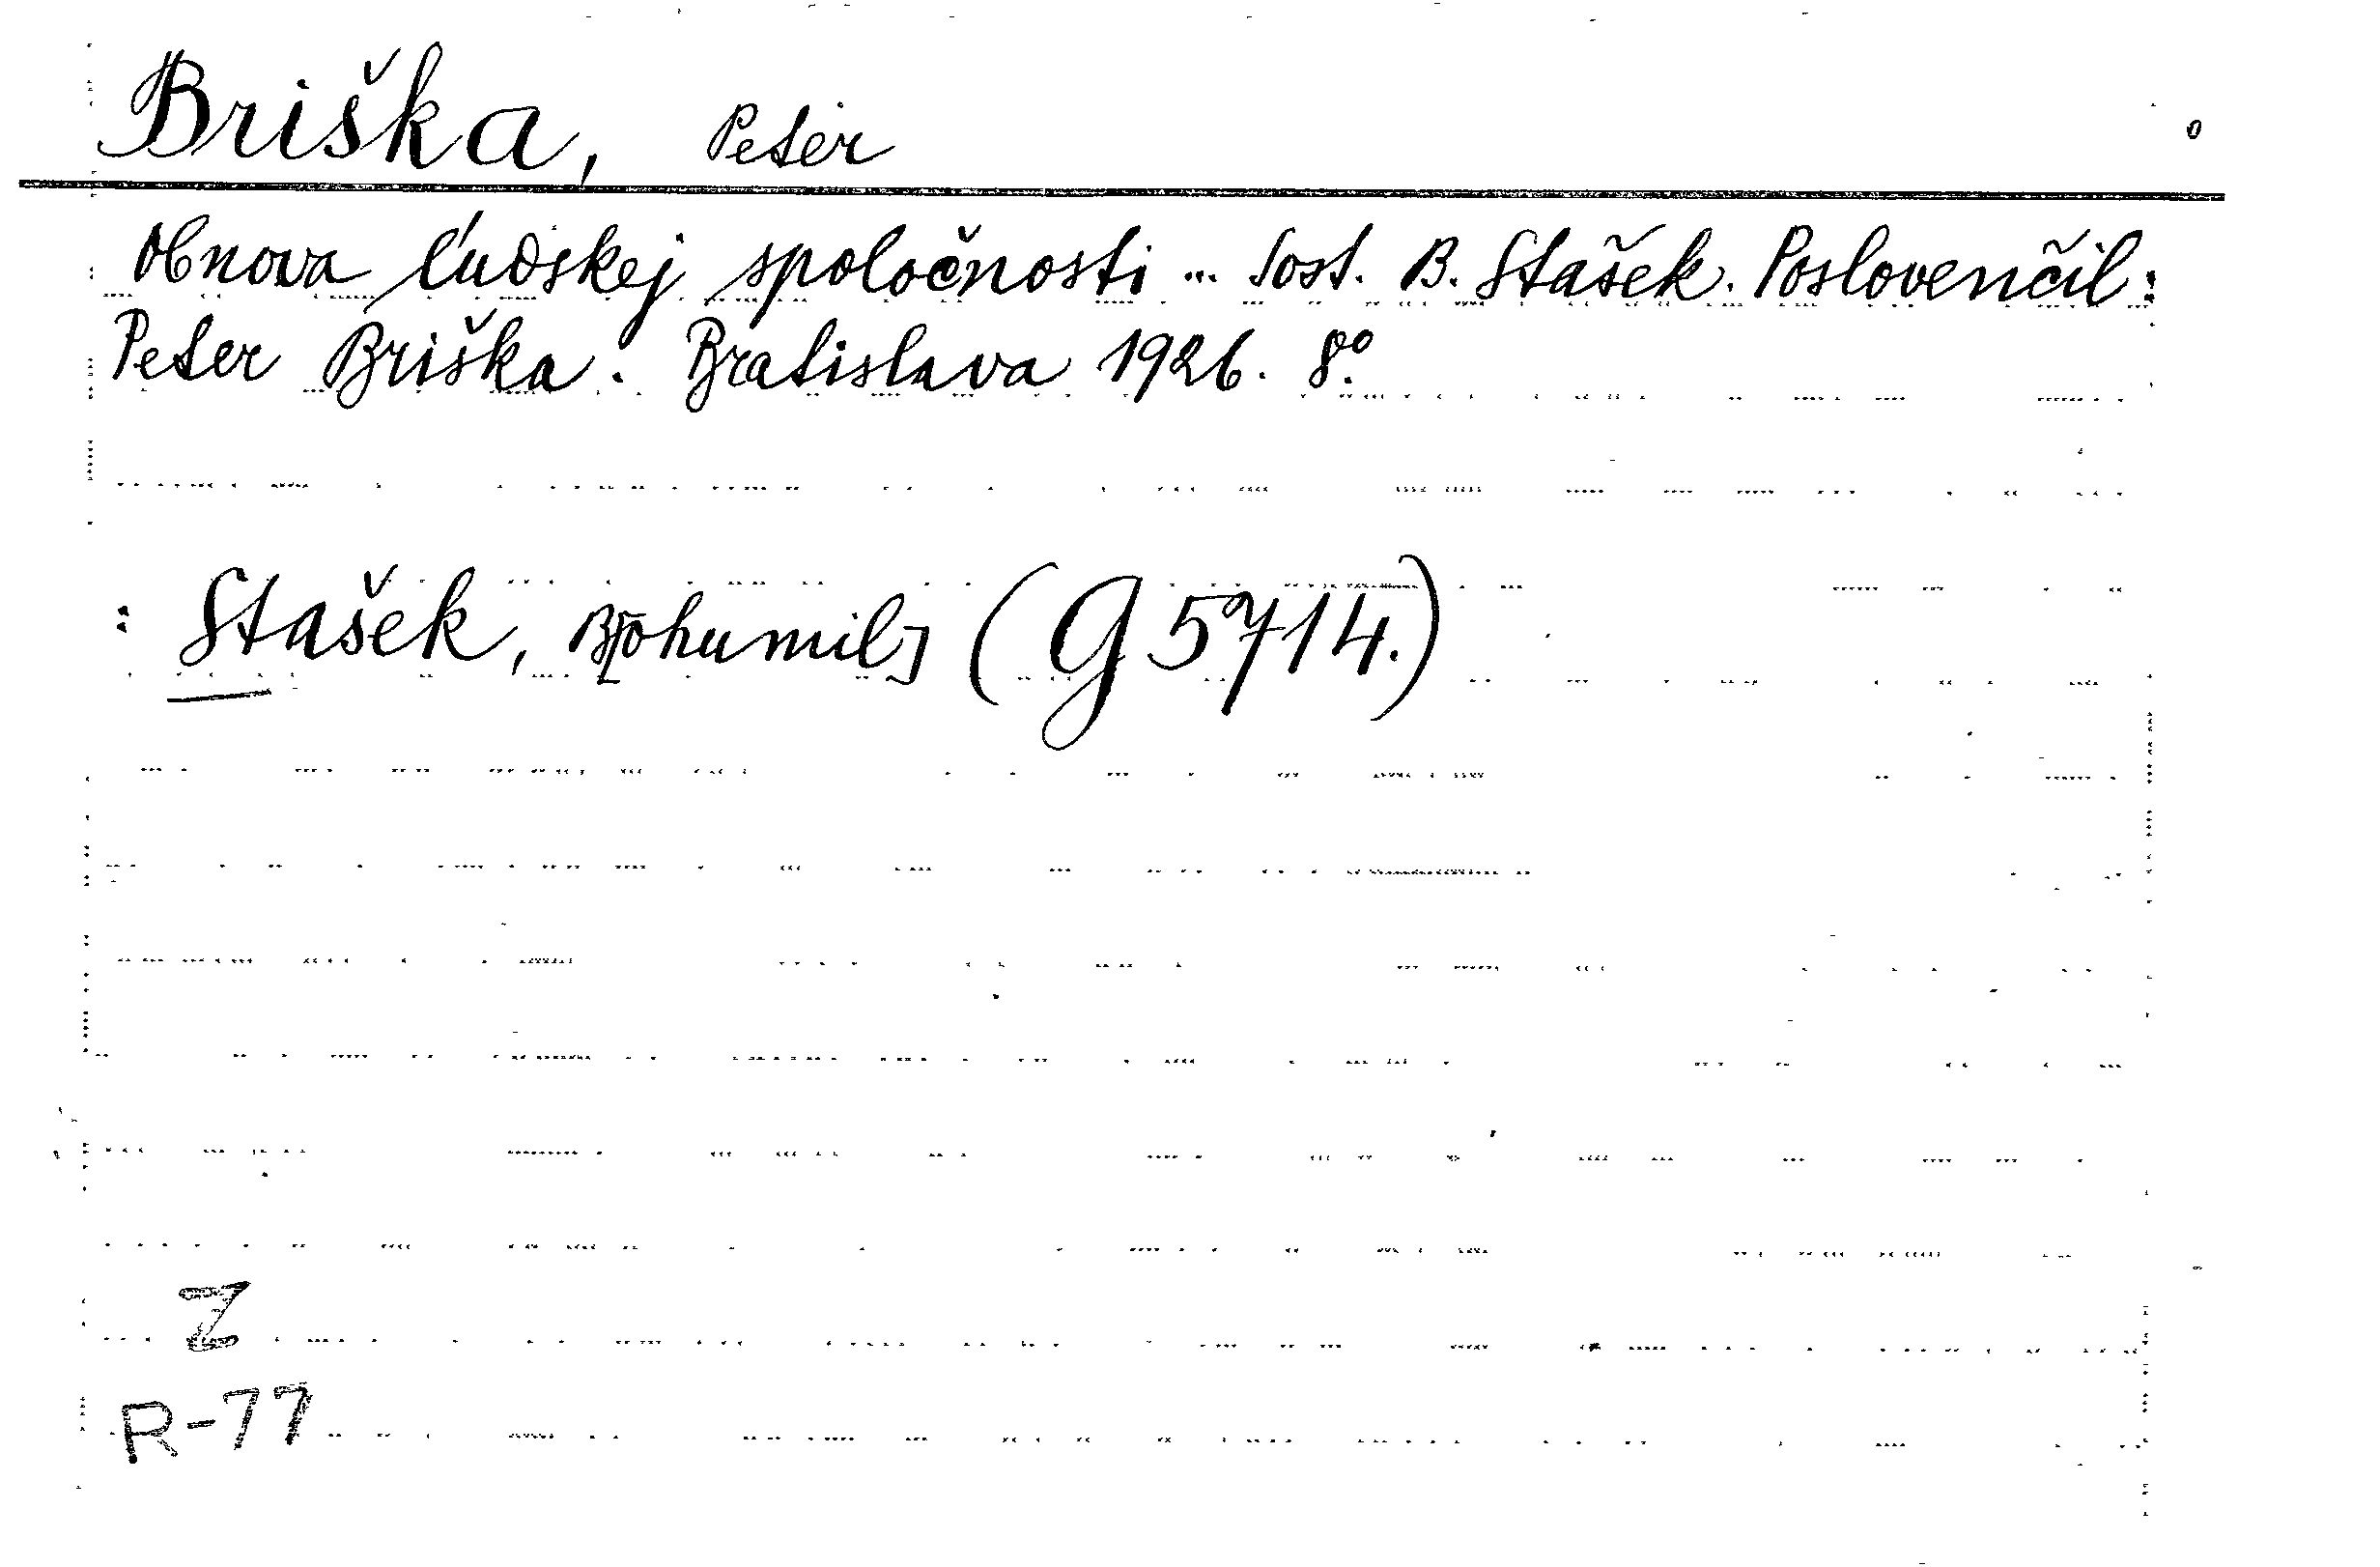 Briška, Peter
Obnova ľudskej spoločnosti ... Sost. B. Stašek. Poslovenčil:
Peter Briška. Bratislava 1926. 8°.
: Stašek, B[ohumil] (G 5714.)
Z
R-77